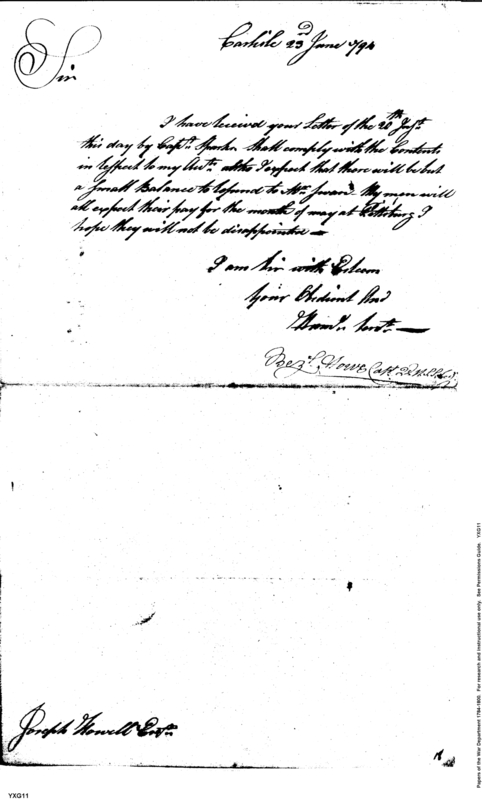 Carlisle 23rd June 1794
Sir
I have received your Letter of the 20th Inst.
this day by Capt. Sparks. Shall comply with the Contents
in respect to my Acts. altho I expect that there will be but
a Small Balance to refund to Mr. Swan. My men will
all expect their pay for the month of may at Pittsburg I
hope they will not be disappointed
I am Sir with Esteem
Your Obedient And
Humb. Servt.
Capt.
Joseph Howell Esqr.
Papers of the War Department 1784-1800. For research and instructional use only. See Permissions Guide. YXG11
YXG11